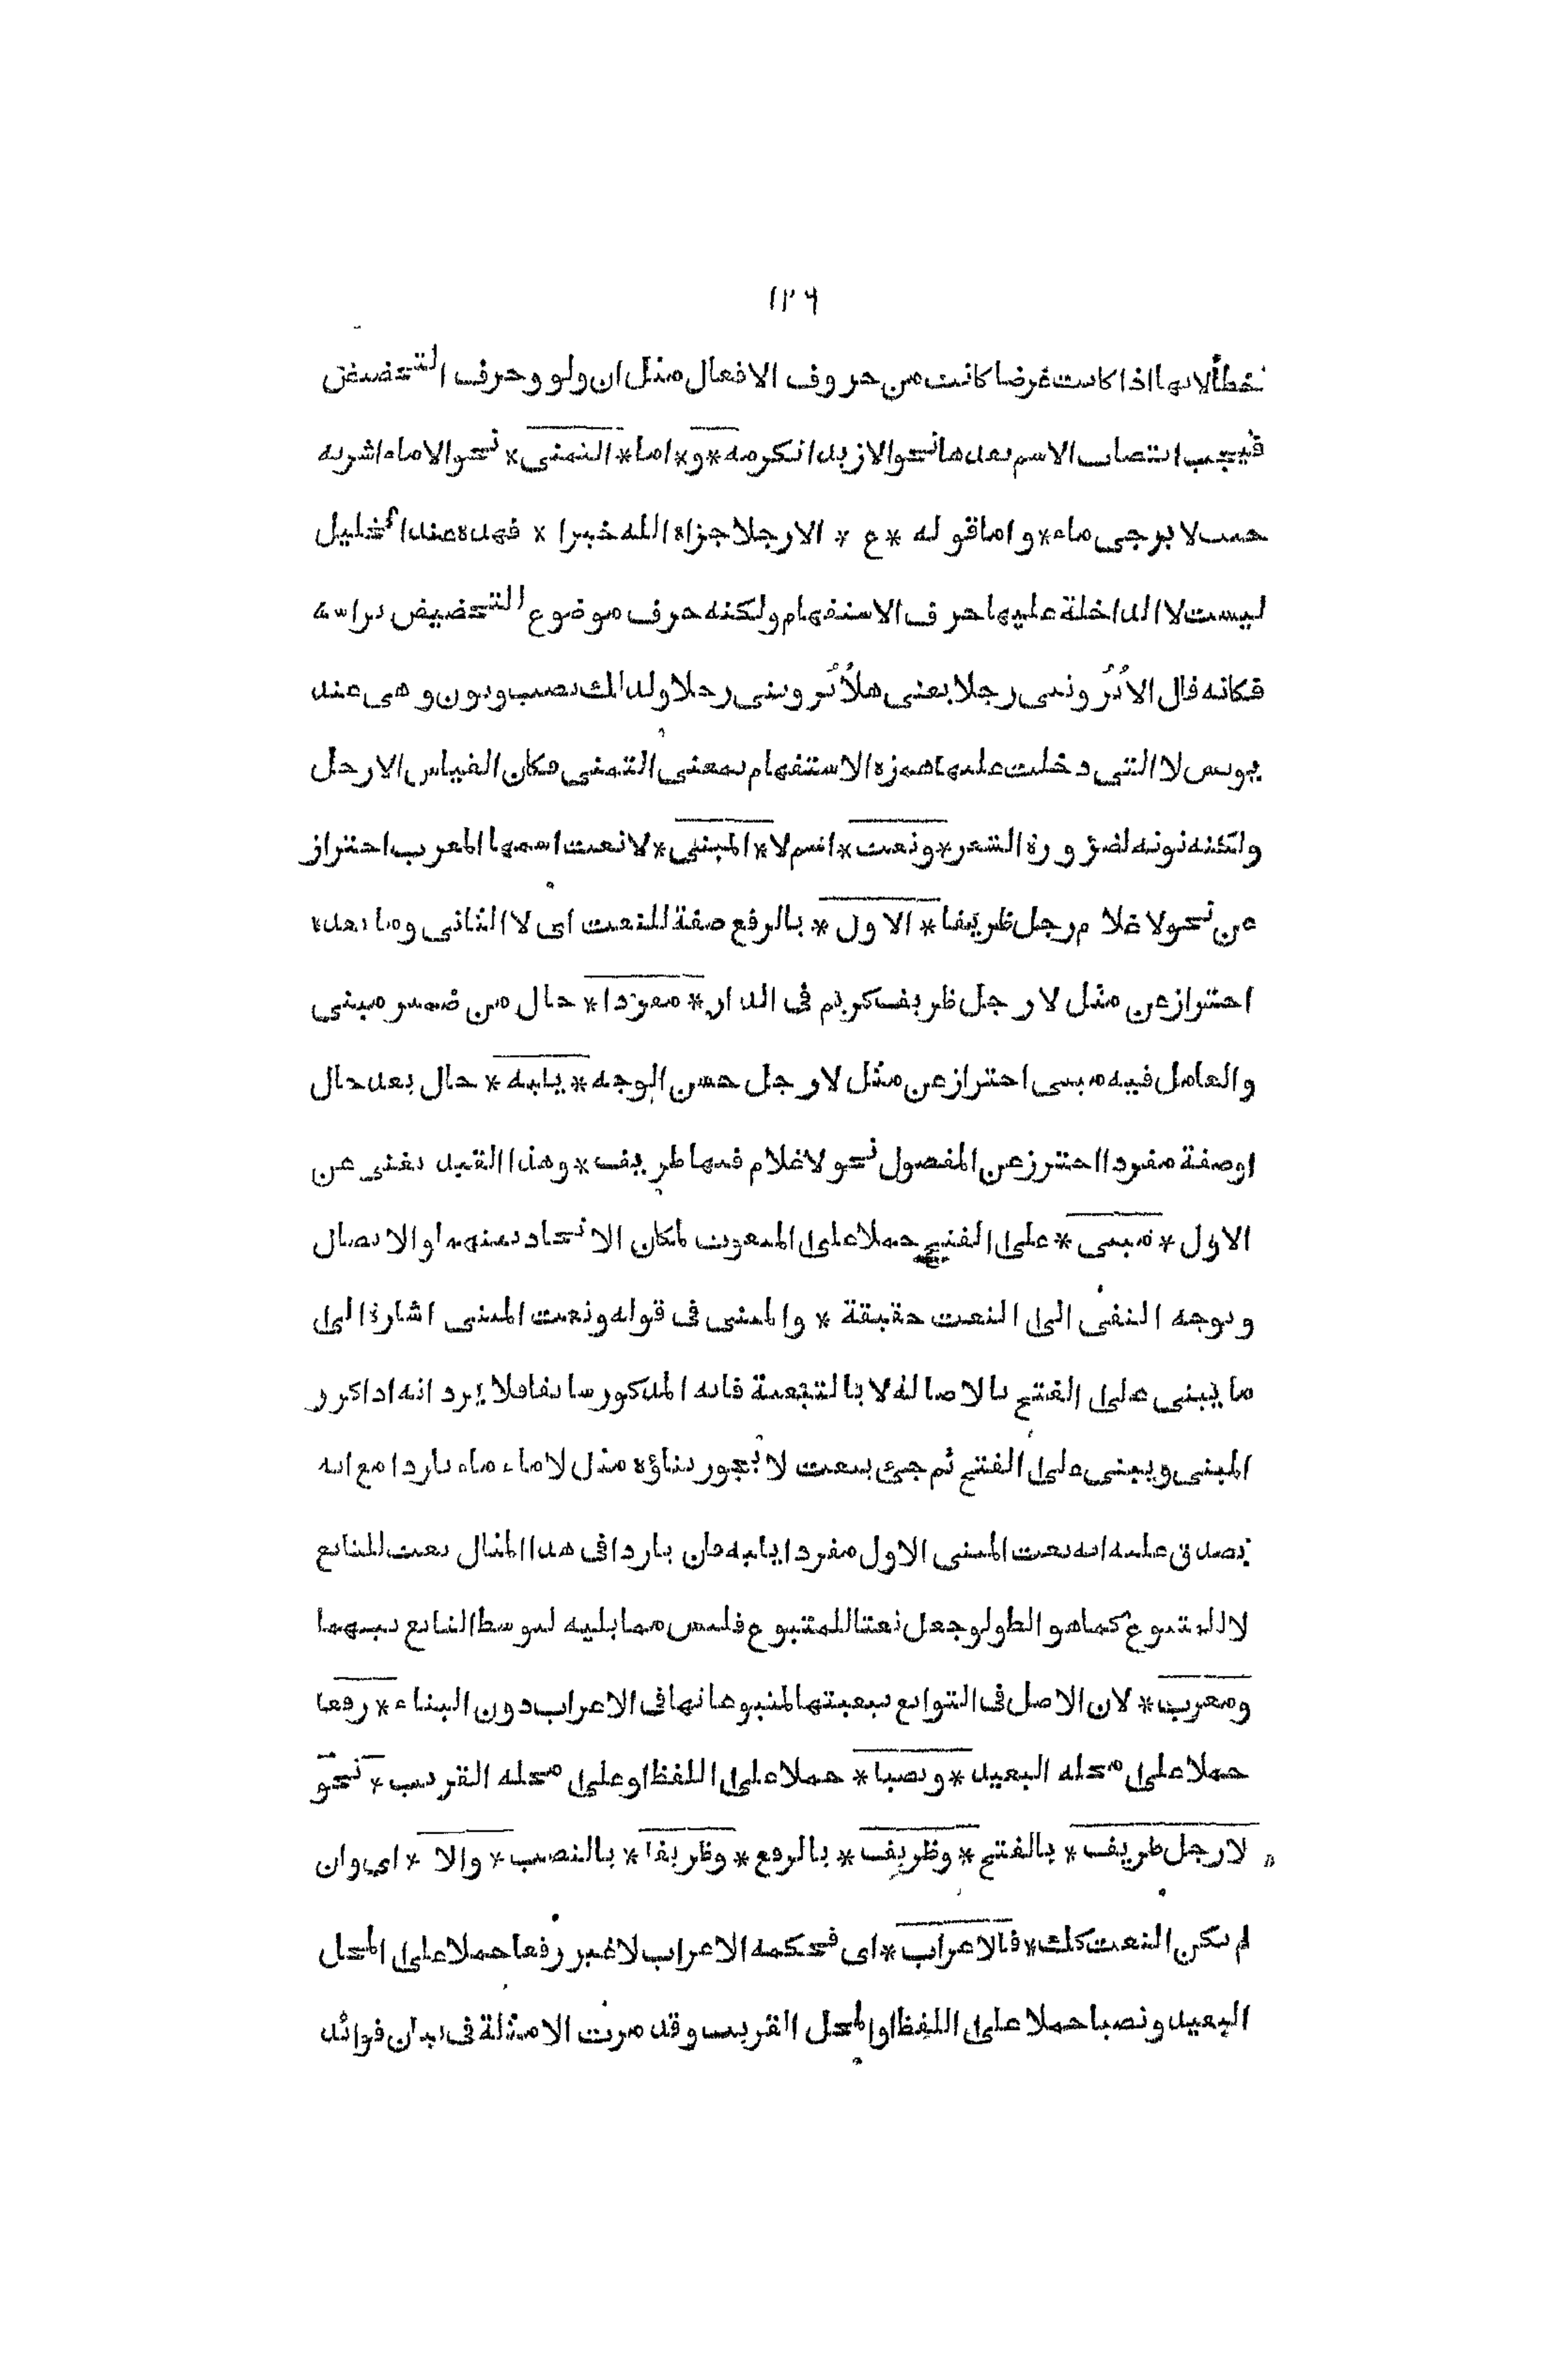 ١٣٦
خطأ لانها اذا كانت عرضا كانت من حروف الافعال مثل ان ولو وحرف التحضيض
فيجب انتصاب الاسم بعدها نحو الا زيدا تكرمه * و * اما * التمنى * نحو الا ماء اشربه
حيث لا يرجى ماء * واما قوله * ع * الا رجلا جزاه الله خيرا * فهذه عند الخليل
ليست لا الداخلة عليها حرف الاستفهام ولكنه حرف موضوع للتحضيض براسه
فكانه قال الا تُرُونى رجلا بمعنى هلا تُرُوننى رجلا ولذالك نصب ونون وهى عند
يونس لا التى دخلت عليها همزة الاستفهام بمعنى التمنى فكان القياس الا رجل
ولكنه نونه لضرورة الشعر * ونعت * اسم لا * المبنى * لا نعت اسمها المعرب احتراز
عن نحو لا غلام رجل ظريفا * الاول * بالرفع صفة للنعت اى لا الثانى وما بعده
احتراز عن مثل لا رجل ظريف كريم فى الدار * مفردا * حال من ضمير مبنى
والعامل فيه مبنى احتراز عن مثل لا رجل حسن الوجه * يليه * حال بعد حال
او صفة مفردا احترز عن المفصول نحو لا غلام فيها ظريف * وهذا القيد يغنى عن
الاول * مبنى * على الفتح حملا على المنعوت لمكان الاتحاد بينهما والاتصال
وتوجه النفى الى النعت حقيقة * والمبنى فى قوله ونعت المبنى اشارة الى
ما يبنى على الفتح بالاصالة لا بالتبعية فانه المذكور سابقا فلا يرد انه اذا كرر
المبنى ويبنى على الفتح ثم جىء بنعت لا يجوز بناؤه مثل لا ماء ماء باردا مع انه
يصدق عليه انه نعت المبنى الاول مفردا يليه فان باردا فى هذا المثال نعت للتابع
لا للمتبوع كما هو الظ ولو جعل نعتا للمتبوع فليس مما يليه لتوسط التابع بينهما
ومعرب * لان الاصل فى التوابع تبعيتها لمتبوعاتها فى الاعراب دون البناء * رفعا
حملا على محله البعيد * ونصبا * حملا على اللفظ او على محله القريب * نحو
لا رجل ظريف * بالفتح * وظريف * بالرفع * وظريفا * بالنصب * والا * اى وان
لم يكن النعت كك * فالاعراب * اى فحكمه الاعراب لا غير رفعا حملا على المحل
البعيد ونصبا حملا على اللفظ او المحل القريب وقد مرت الامثلة فى بيان فوائد